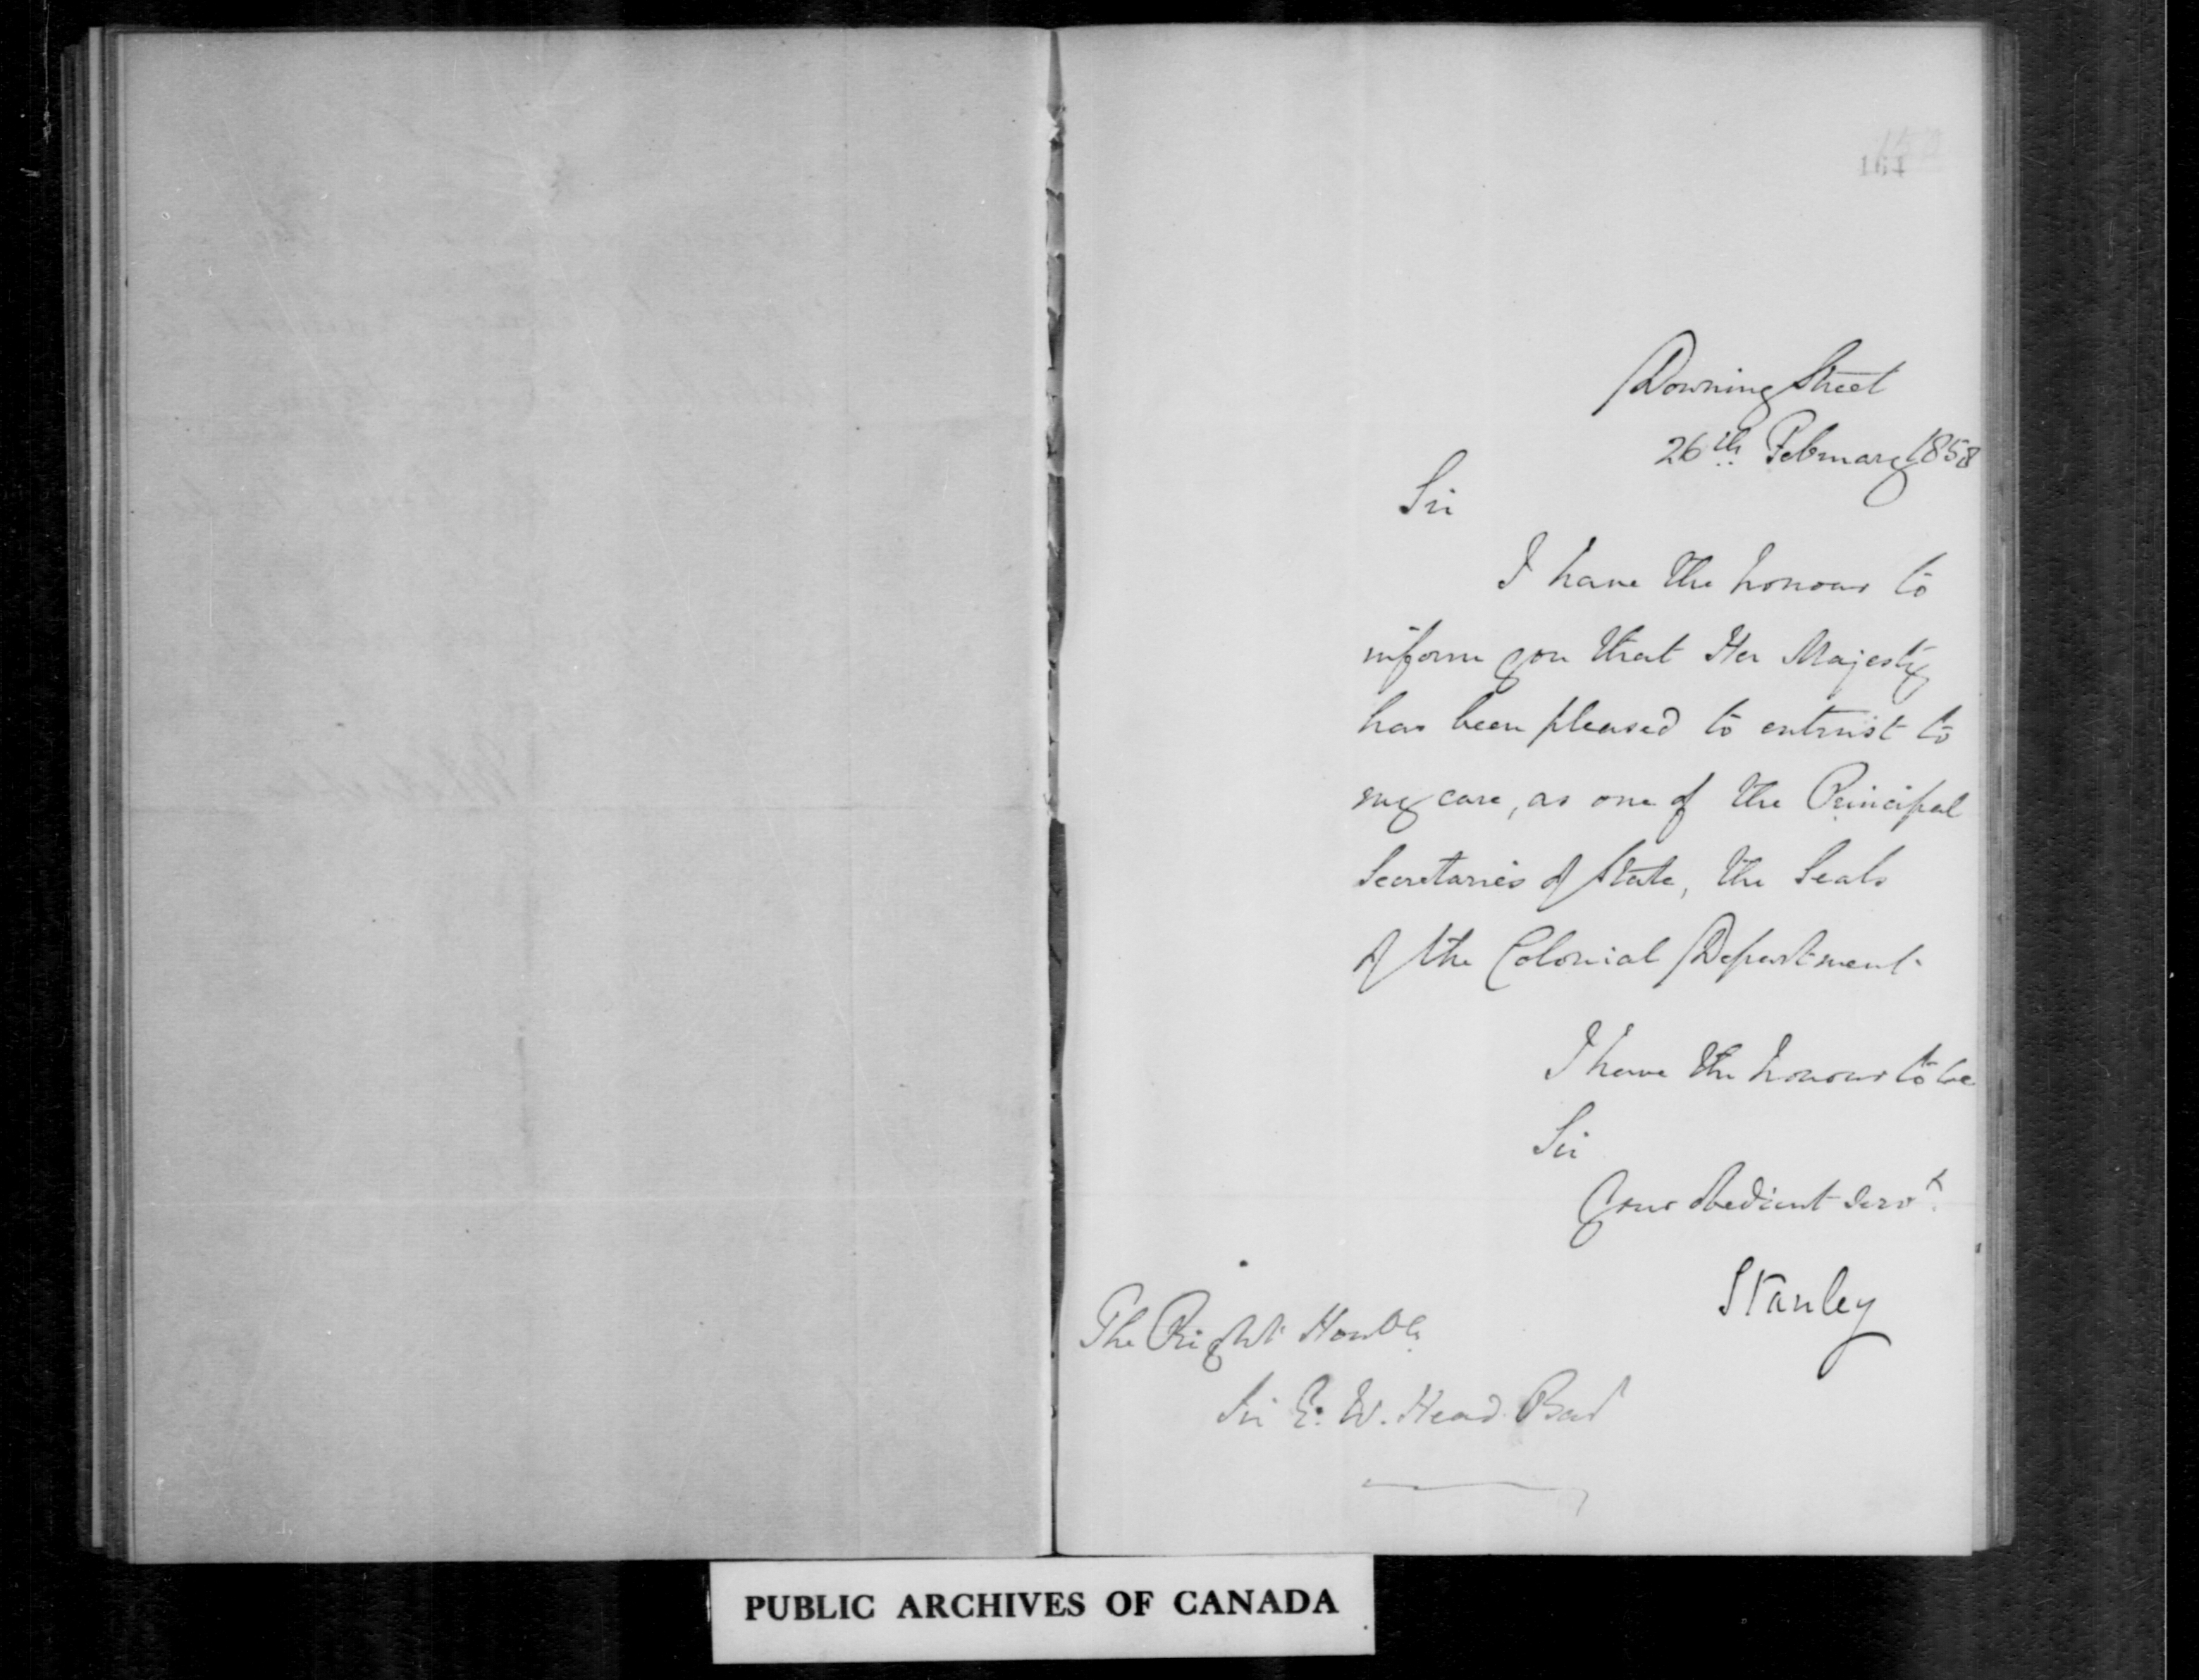 164
Downing Street
26th February 1858
Sir
I have the honour to
inform you that Her Majesty
has been pleased to entrust to
my care, as one of the Principal
Secretaries of State, the Seals
of the Colonial Department.
I have the honour to be
Sir
Your obedient servt.
Stanley
The Right Honble
Sir E. W. Head Bart
PUBLIC ARCHIVES OF CANADA